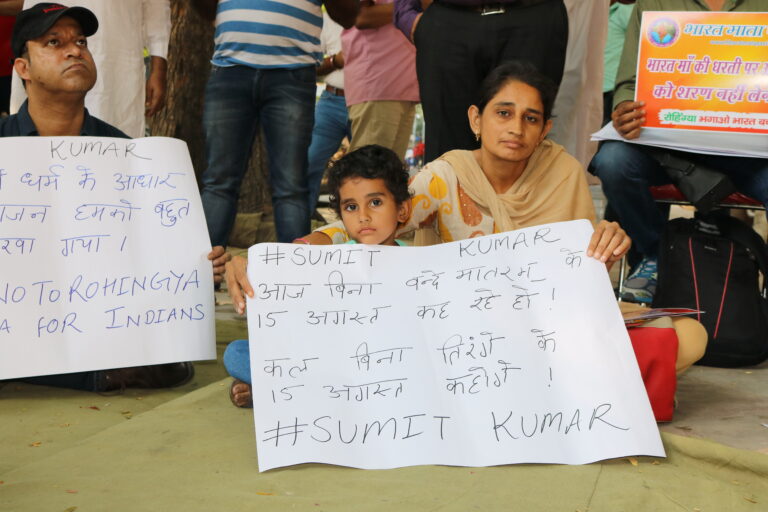 KUMAR
धर्म के आधार
हमको बहुत
गया ।
NO TO ROHINGYA
FOR INDIANS
#SUMIT KUMAR
आज बिना वन्दे मातरम् के
15 अगस्त कह रहे हो !
कल बिना तिरंगे के
15 अगस्त कहोगे !
#SUMIT KUMAR
भारत माता
भारत माँ की धरती
को शरण नही
रोहिंग्या भगाओ भारत